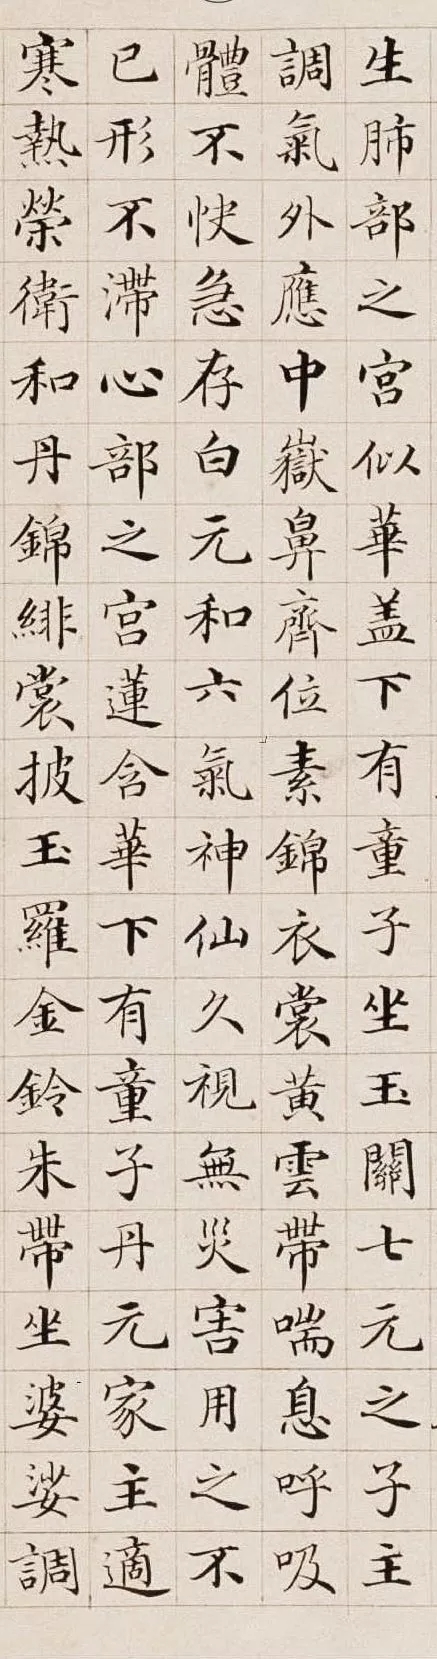 生肺部之宮似華盖下有童子坐玉闕七元之子主
調氣外應中嶽鼻齊位素錦衣裳黃雲帶喘息呼吸
體不快急存白元和六氣神仙久視無災害用之不
已形不滯心部之宮蓮含華下有童子丹元家主適
寒熱榮衛和丹錦緋裳披玉羅金鈴朱帶坐婆娑調